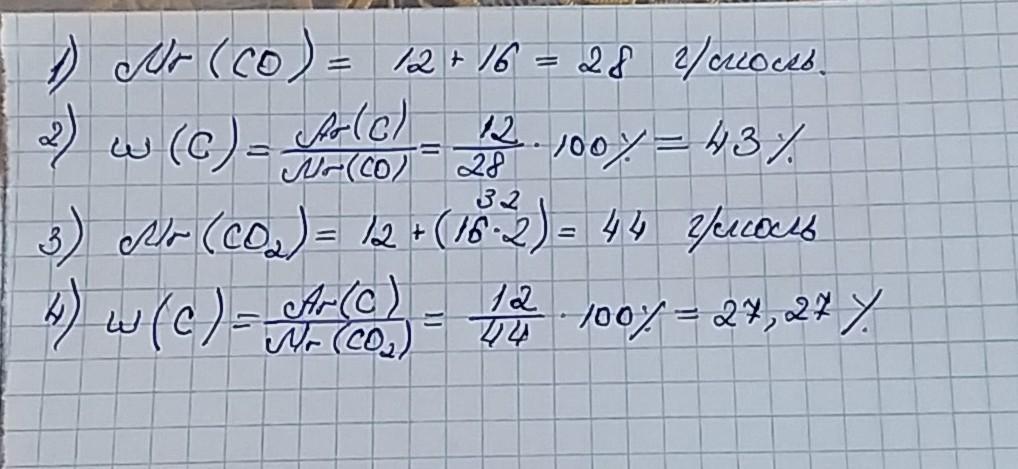 1) Mr (CO) = 12 + 16 = 28 г/моль.
2) w (C) = Ar(C) / Mr(CO) = 12 / 28 · 100% = 43 %
3) Mr (CO₂) = 12 + (16 · 2) = 44 г/моль
32
4) w (C) = Ar(C) / Mr(CO₂) = 12 / 44 · 100% = 27,27 %